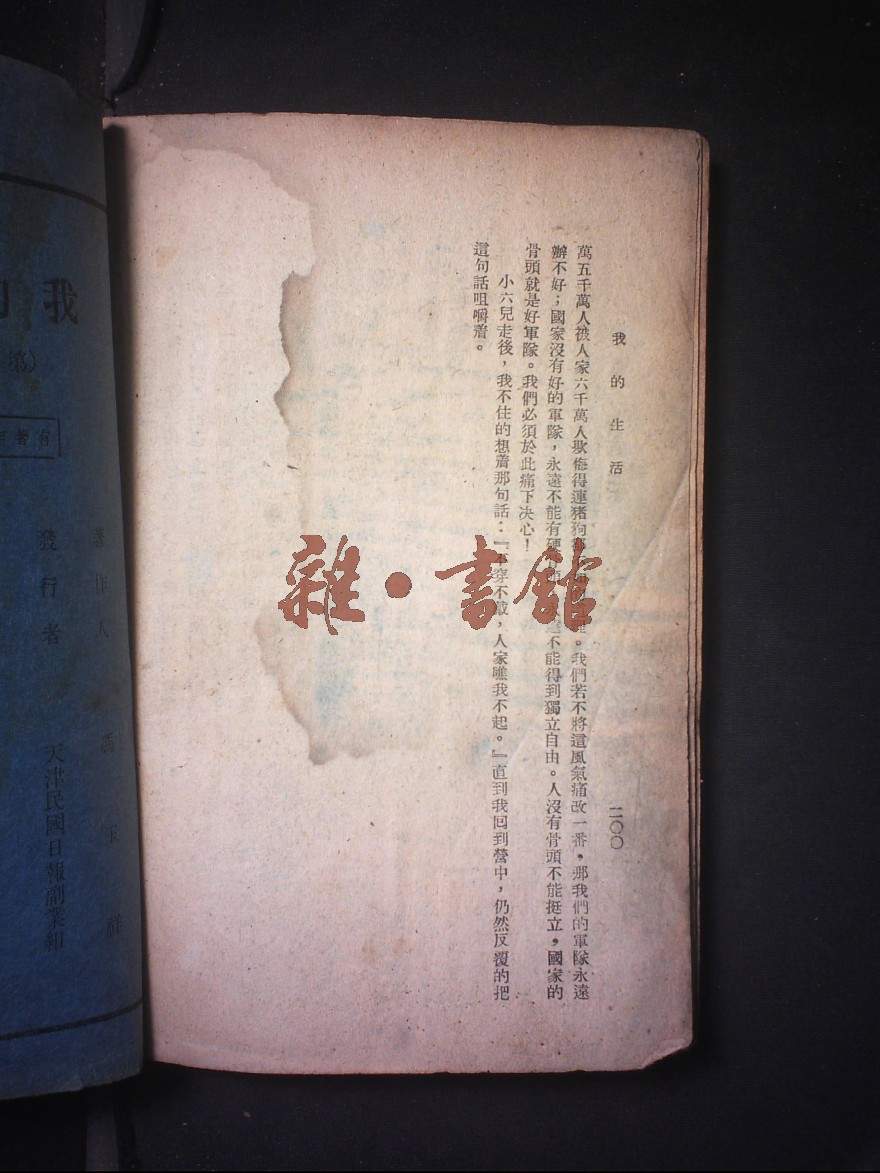 我的生活
二〇〇
萬五千萬人被人家六千萬人欺侮得連猪狗。我們若不將這風氣痛改一番，那我們的軍隊永遠
辦不好；國家沒有好的軍隊，永遠不能有硬不能得到獨立自由。人沒有骨頭不能挺立，國家的
骨頭就是好軍隊。我們必須於此痛下决心！
小六兒走後，我不住的想着那句話：『不穿不戴，人家瞧我不起。』直到我回到營中，仍然反覆的把
這句話咀嚼着。
雜·書館
我
有著
著作人 馮玉祥
發行者 天津民國日報副業組